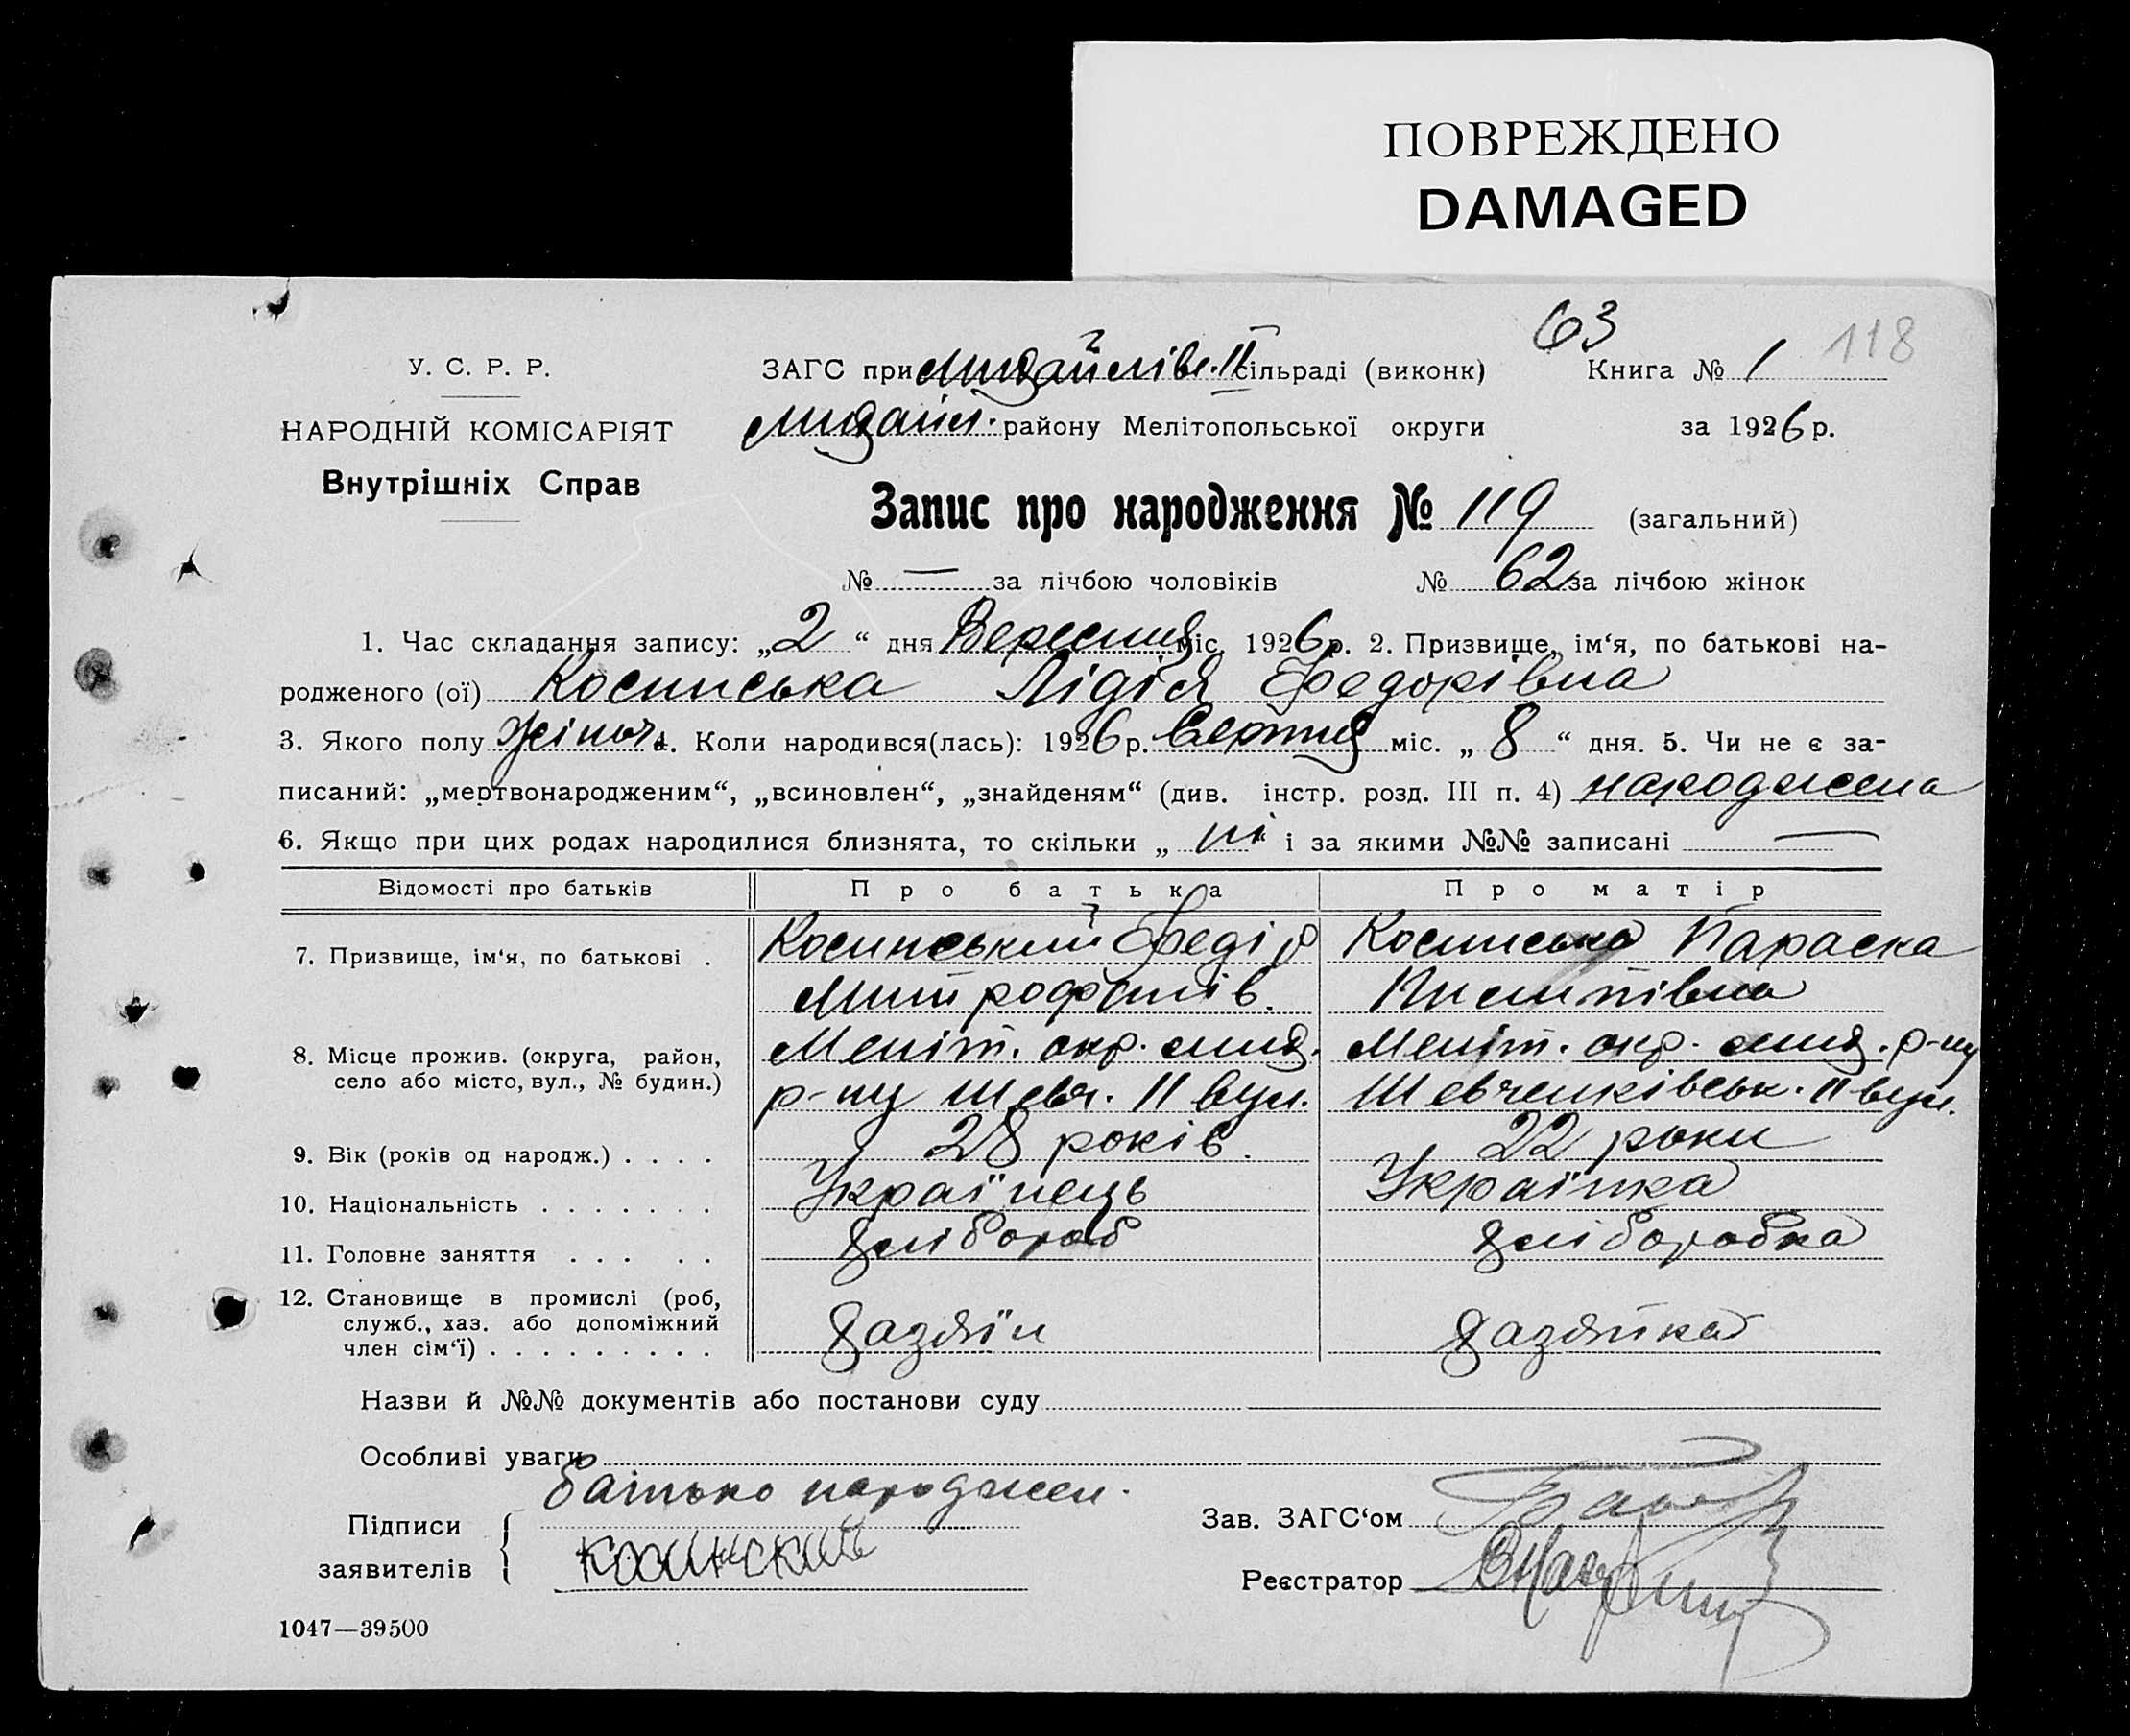 ПОВРЕЖДЕНО
DAMAGED
63
118
У. С. Р. Р.
ЗАГС при Михайлів. II сільраді (виконк) Книга № 1
НАРОДНІЙ КОМІСАРІЯТ
Михайл. району Мелітопольської округи за 1926 р.
Внутрішніх Справ
Запис про народження № 119 (загальний)
№ — за лічбою чоловіків № 62 за лічбою жінок
1. Час складання запису: „2“ дня Вересня міс. 1926 р. 2. Призвище, ім‘я, по батькові на-
родженого (ої) Косинська Лідія Федорівна
3. Якого полу жіноч. 4. Коли народився(лась): 1926 р. Серпня міс. „8“ дня. 5. Чи не є за-
писаний: „мертвонародженим“, „всиновлен“, „знайденям“ (див. інстр. розд. III п. 4) народжена
6. Якщо при цих родах народилися близнята, то скільки „ні“ і за якими №№ записані —
Відомості про батьків Про батька Про матір
7. Призвище, ім‘я, по батькові . Косинський Федір Косинська Параска
Митрофанів.
8. Місце прожив. (округа, район, Меліт. окр. мих. Меліт. окр. мих. р-ну
село або місто, вул., № будин.) р-ну Шевч. II вул. Шевченківськ. II вул.
9. Вік (років од народж.) . . . . 28 років. 22 роки
10. Національність . . . . . . . Українець Українка
11. Головне заняття . . . . . хлібороб хліборобка
12. Становище в промислі (роб,
служб., хаз. або допоміжний хазяїн хазяйка
член сім‘ї) . . . . . . . . .
Назви й №№ документів або постанови суду
Особливі уваги
батько народжен.
Підписи
заявителів
Косинский
Зав. ЗАГС‘ом
Реєстратор
1047—39500